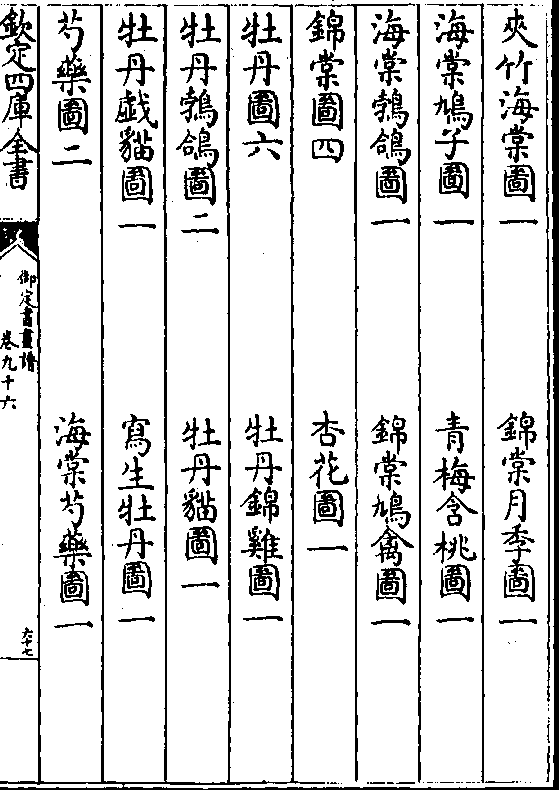 夾竹海棠圖一　錦棠月季圖一
海棠鳩子圖一　青梅含桃圖一
海棠鵓鴿圖一　錦棠鳩禽圖一
錦棠圖四　杏花圖一
牡丹圖六　牡丹錦雞圖一
牡丹鵓鴿圖二　牡丹貓圖一
牡丹戯貓圖一　寫生牡丹圖一
芍藥圖二　海棠芍藥圖一
欽定四庫全書
御定書畫譜
卷九十六
六十七